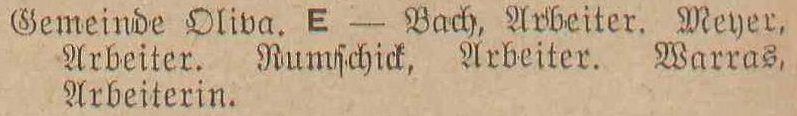 Gemeinde Oliva. E — Bach, Arbeiter. Meyer,
Arbeiter. Rumschick, Arbeiter. Warras,
Arbeiterin.